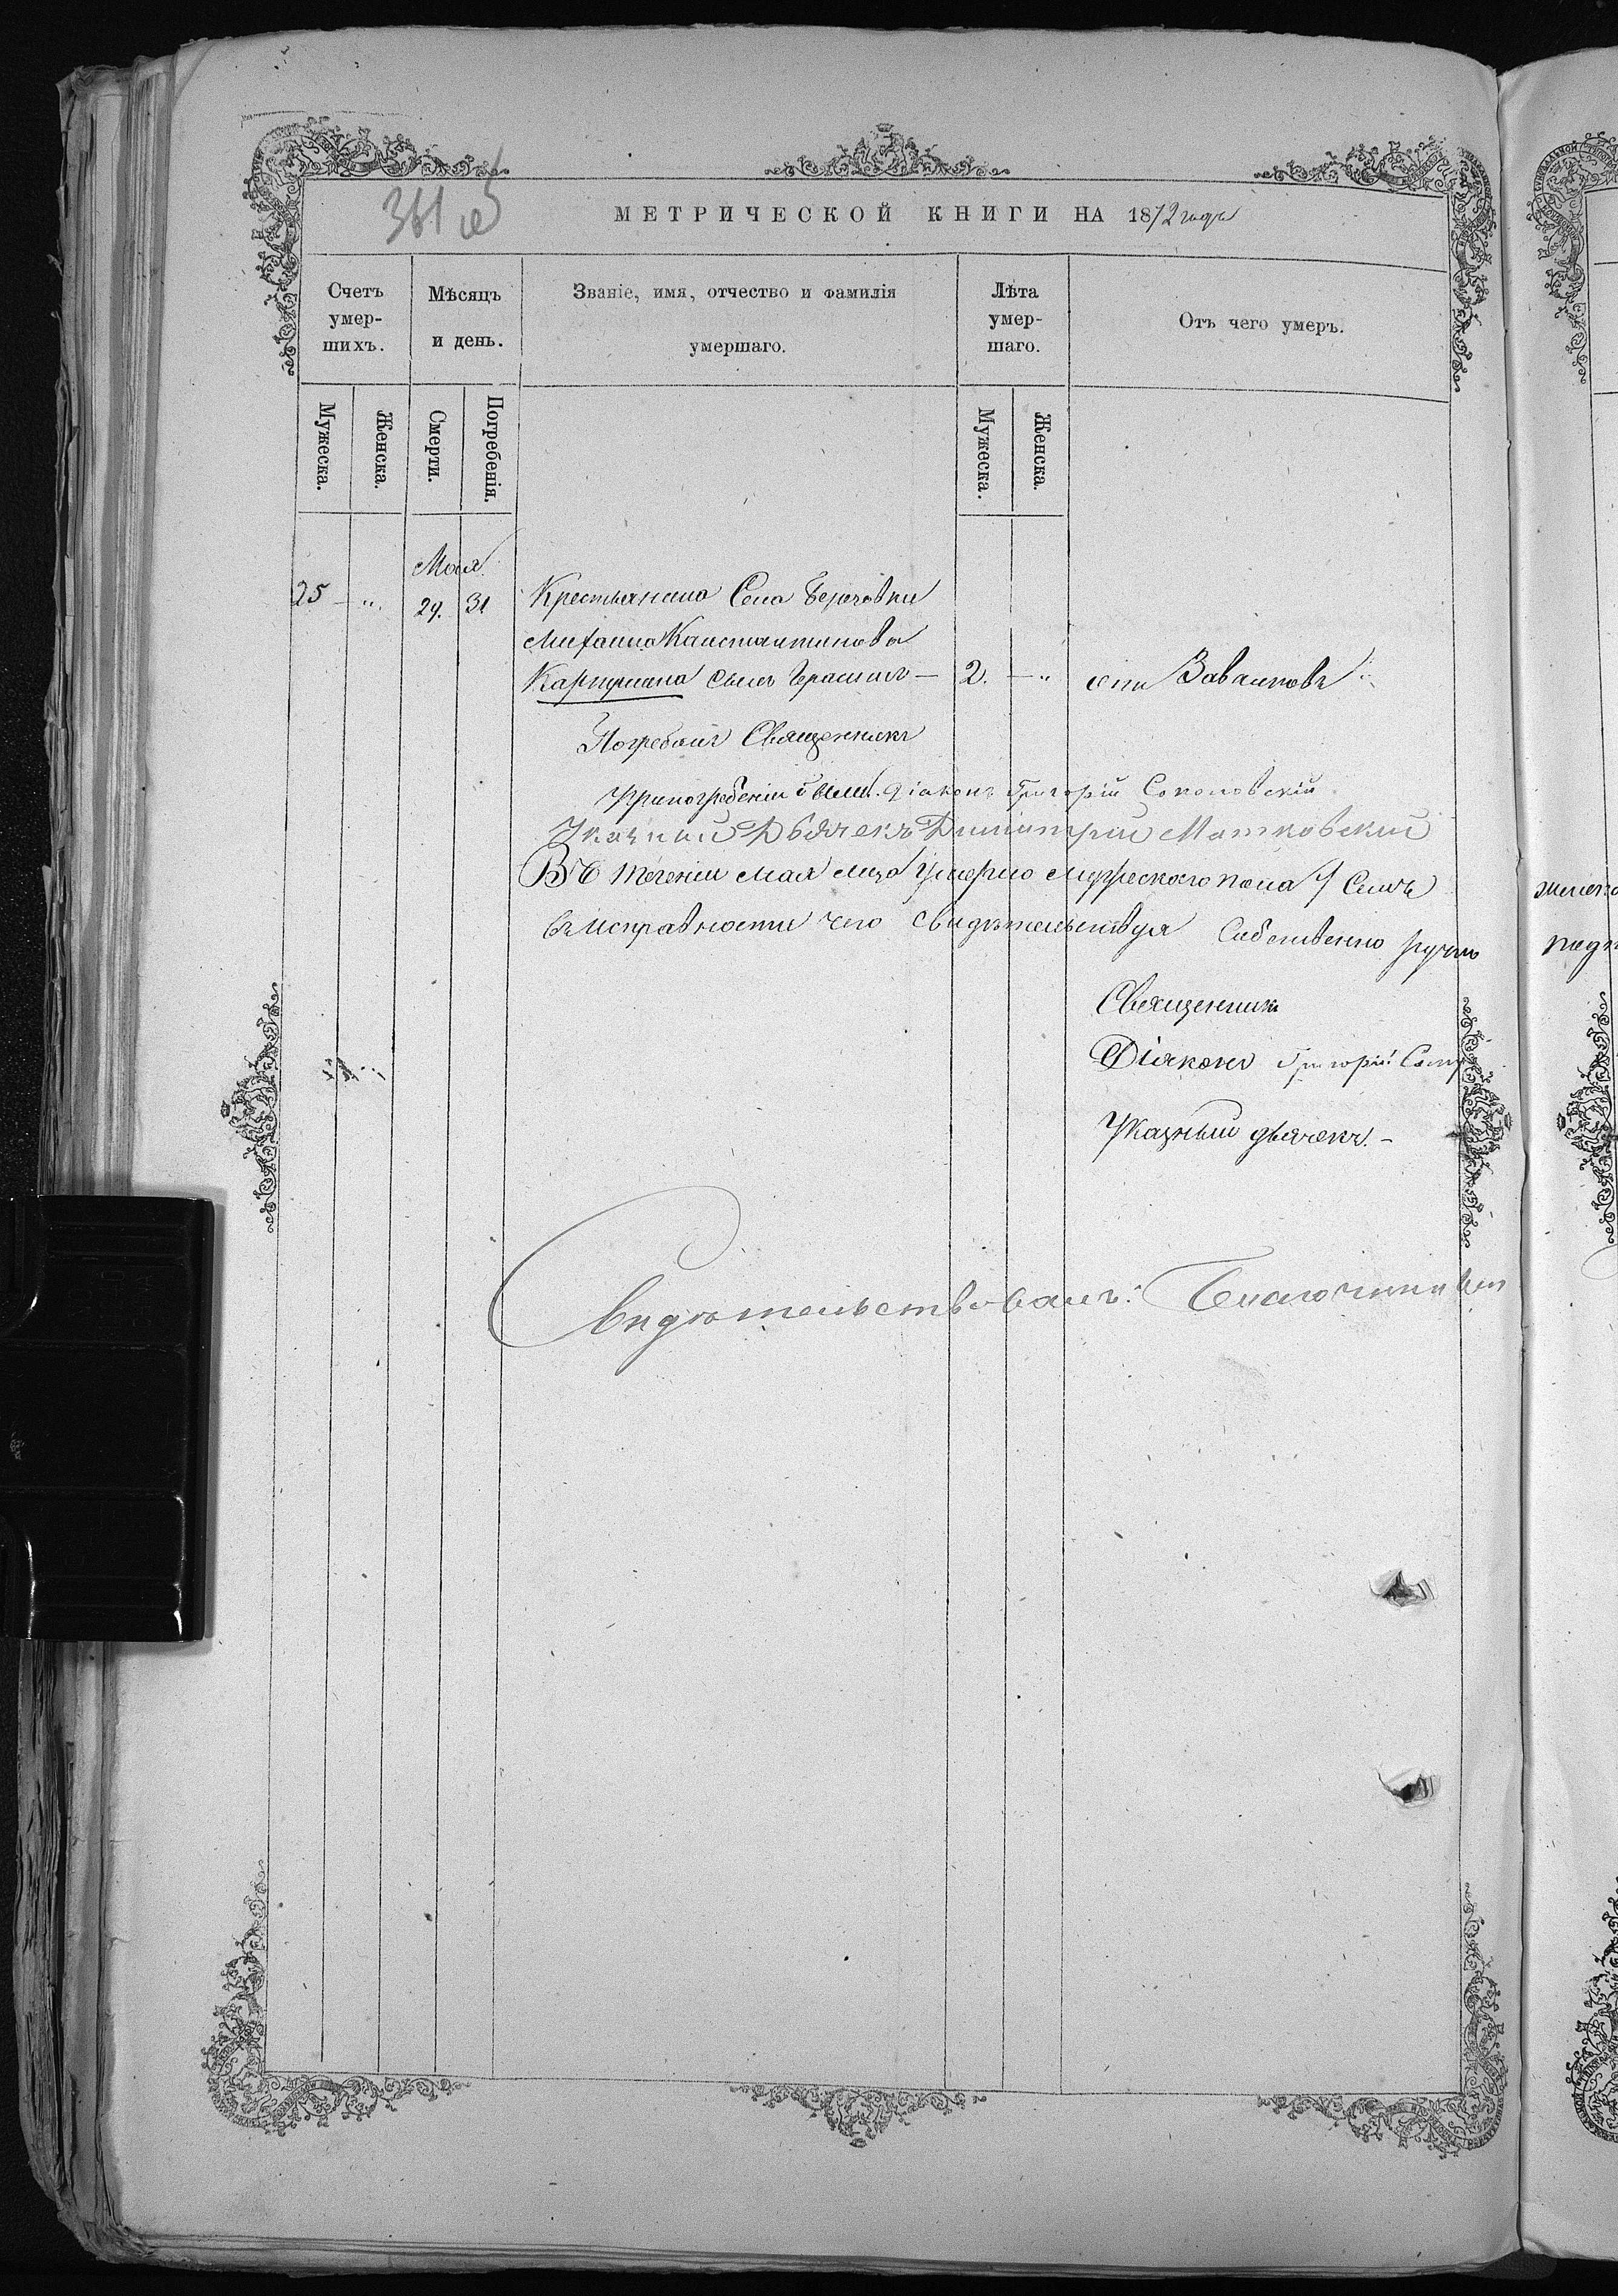 МЕТРИЧЕСКОЙ КНИГИ НА 1872 года
Счетъ умер-шихъ.
Мѣсяцъ и день.
Званіе, имя, отчество и фамилія умершаго.
Лѣта умер-шаго.
Отъ чего умеръ.
Мужеска. Женска. Смерти. Погребенія. Мужеска. Женска.
Мая
25 - „ 29. 31 Крестьянина Села
Михаила Константинова
Карпумана сынъ Герасимъ — 2. — „ отъ Завалковъ
Погребалъ Священникъ
При погребеніи были: діаконъ Григорій Соколовскій
Указный Дьячекъ Димитрій Матковскій
Въ теченіи мая мца умерло мужескаго пола 7 Семь
въ исправности чего свидѣтельствуя Собственно ручно
Священникъ
Діяконъ Григорій
Указный дьячекъ. -
Свидѣтельствовалъ: Благочинный